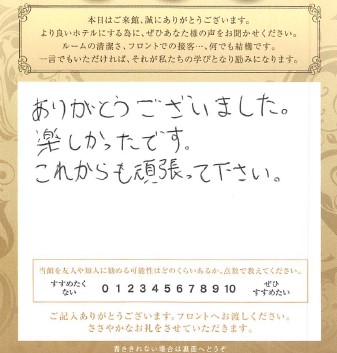 本日はご来館、誠にありがとうございます。
より良いホテルにする為に、ぜひあなた様の声をお聞かせください。
ルームの清潔さ、フロントでの接客…、何でも結構です。
一言でもいただければ、それが私たちの学びとなり励みになります。
ありがとうございました。
楽しかったです。
これからも頑張って下さい。
当館を友人や知人に勧める可能性はどのくらいあるか、点数で教えてください。
すすめたくない 0 1 2 3 4 5 6 7 8 9 10 ぜひすすめたい
ご記入ありがとうございます。フロントへお渡しください。
ささやかなお礼をさせていただきます。
書ききれない場合は裏面へどうぞ